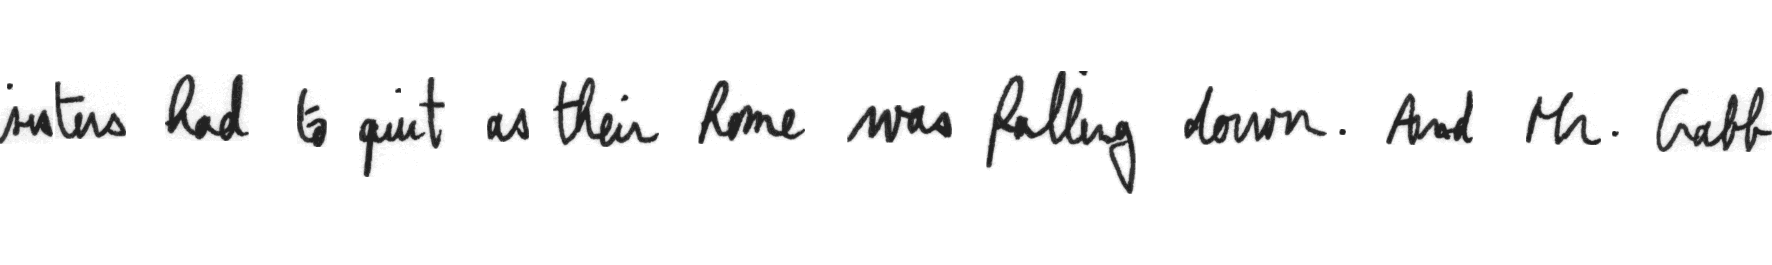 sisters had to quit as their home was falling down. And Mr. Crabb